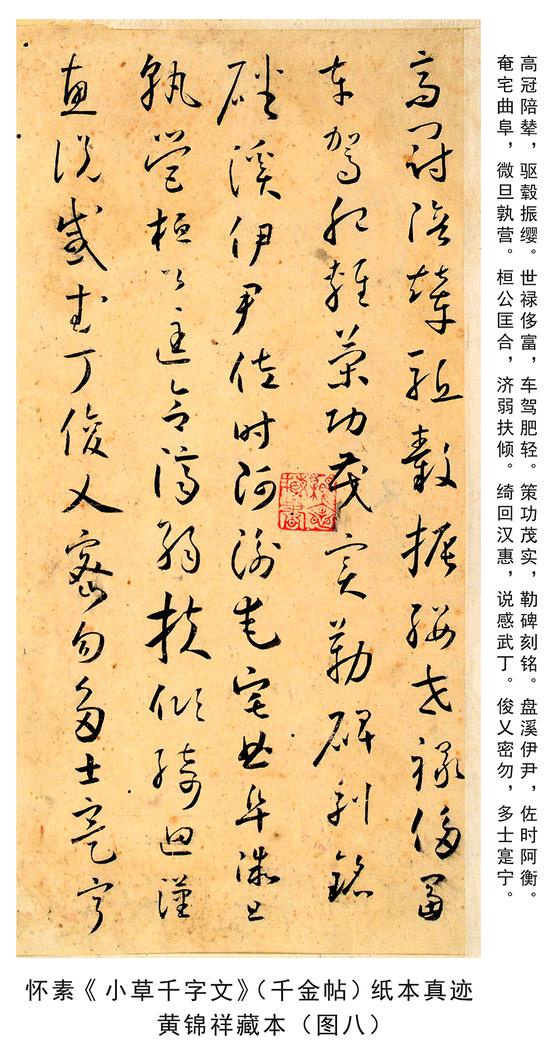 高冠陪辇，驱毂振缨。世禄侈富，车驾肥轻。策功茂实，勒碑刻铭。盘溪伊尹，佐时阿衡。
奄宅曲阜，微旦孰营。桓公匡合，济弱扶倾。绮回汉惠，说感武丁。俊乂密勿，多士寔宁。
高冠陪輦驅轂振纓世祿侈富
車駕肥輕策功茂實勒碑刻銘
磻溪伊尹佐時阿衡奄宅曲阜微旦
孰營桓公匡合濟弱扶傾綺迴漢
惠説感武丁俊乂密勿多士寔寧
怀素《小草千字文》（千金帖）纸本真迹
黄锦祥藏本（图八）